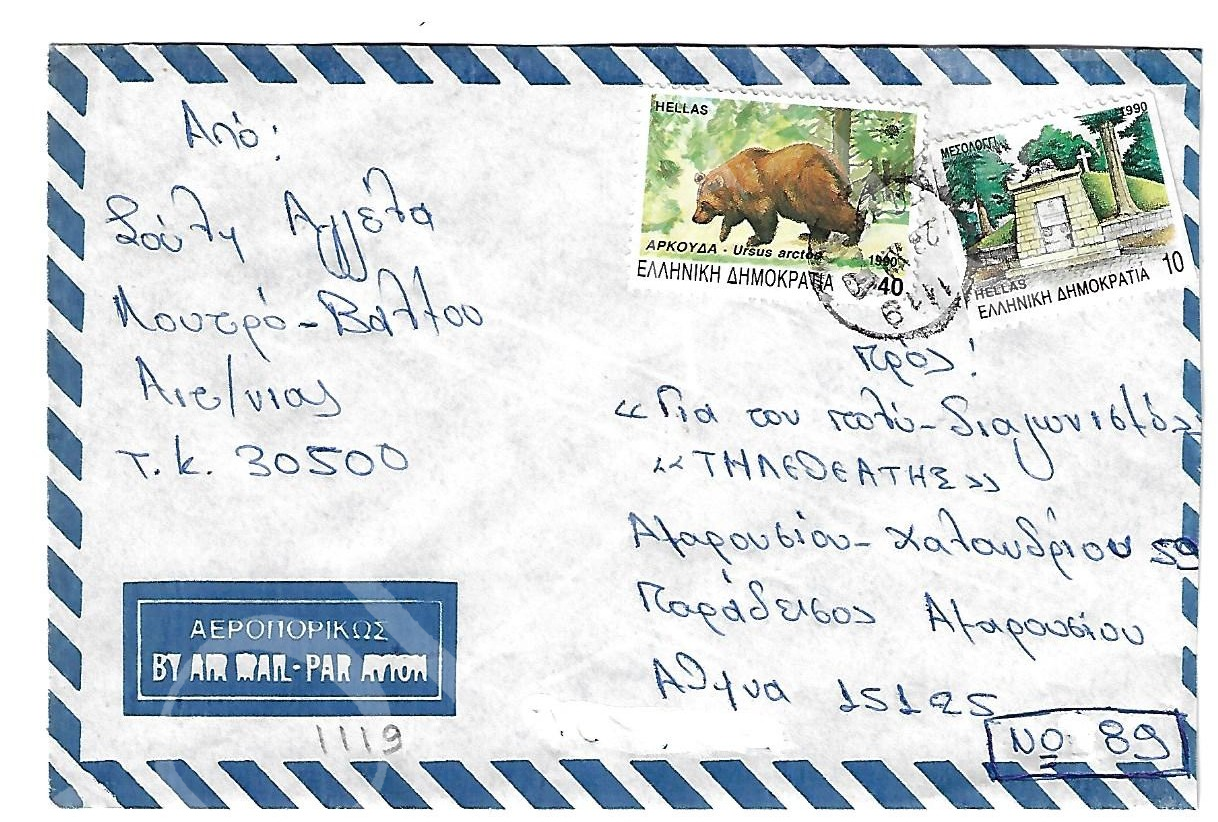 Από:
Σούλη Αγγέλα
Λουτρό-Βάλτου
Αιτ/νιας
Τ.Κ. 30500
HELLAS
ΑΡΚΟΥΔΑ - Ursus arctos
1990
ΕΛΛΗΝΙΚΗ ΔΗΜΟΚΡΑΤΙΑ 40
1990
ΜΕΣΟΛΟΓΓΙ
HELLAS
ΕΛΛΗΝΙΚΗ ΔΗΜΟΚΡΑΤΙΑ 10
Προς!
«Για τον πολύ-διαγωνισμό»
«ΤΗΛΕΘΕΑΤΗΣ»
Αμαρουσίου-Χαλανδρίου 59
Παράδεισος Αμαρουσίου
Αθήνα 15125
Νο 89
ΑΕΡΟΠΟΡΙΚΩΣ
BY AIR MAIL-PAR AVION
1119